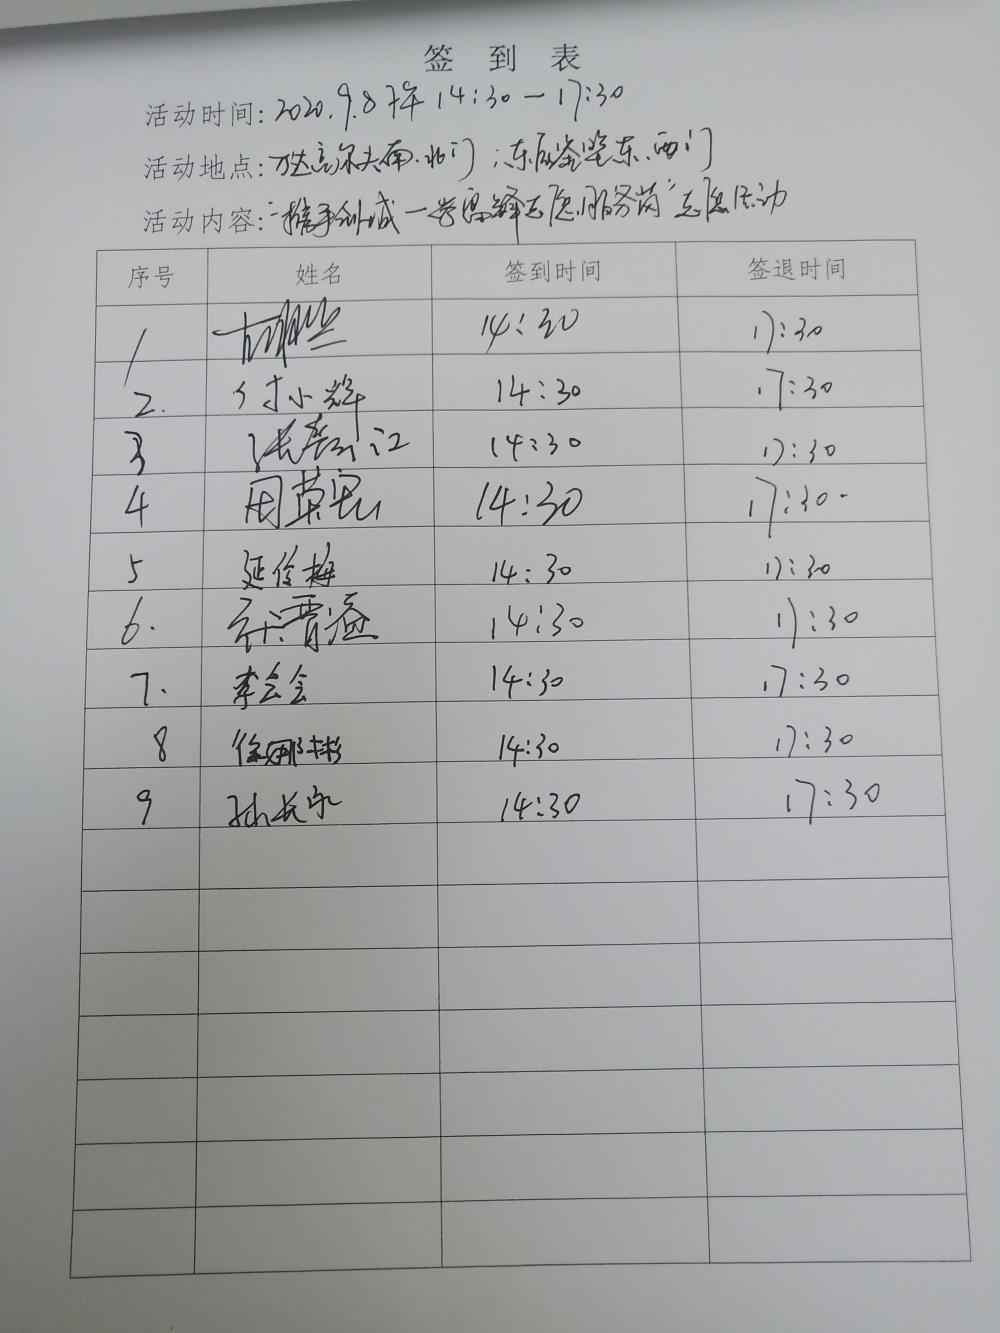 签 到 表
活动时间: 2020.9.8下午14:30—17:30
活动地点: 万达高尔夫南.北门;东辰鉴筑东.西门
活动内容: "携手创城—学雷锋志愿服务岗"志愿活动
序号 姓名 签到时间 签退时间
1 14:30 17:30
2. 付小辉 14:30 17:30
3 张 江 14:30 17:30
4 周英 14:30 17:30.
5 延伶梅 14:30 17:30
6. 14:30 17:30
7. 李会会 14:30 17:30
8 徐娜彬 14:30 17:30
9 孙长永 14:30 17:30